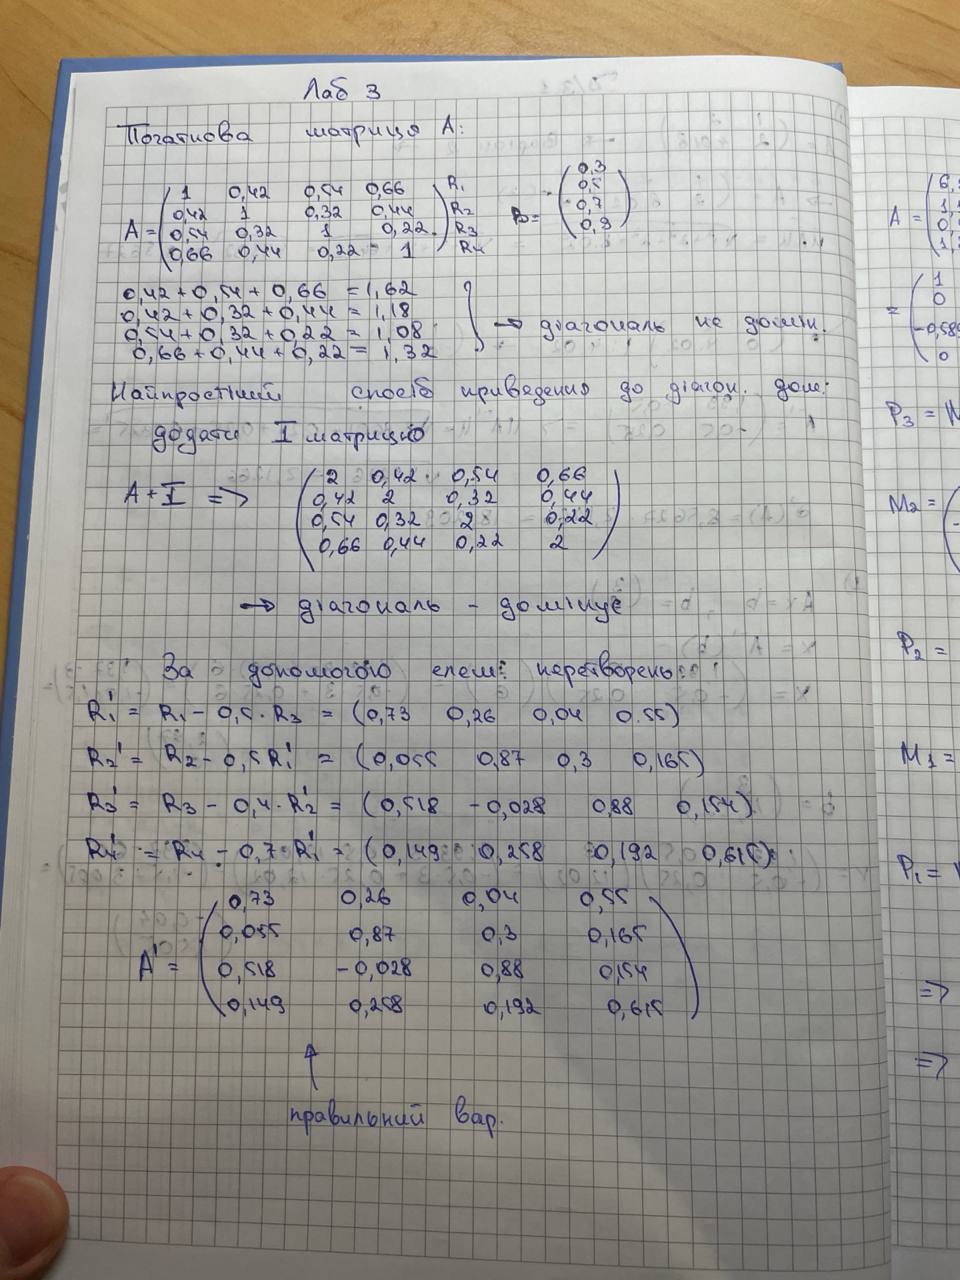 Лаб 3
Початкова матриця A:
A = ( 1 0,42 0,54 0,66 ) R1
0,42 1 0,32 0,44 R2
0,54 0,32 1 0,22 R3
0,66 0,44 0,22 1 R4
B = ( 0,3
0,5
0,7
0,9 )
0,42 + 0,54 + 0,66 = 1,62
0,42 + 0,32 + 0,44 = 1,18
0,54 + 0,32 + 0,22 = 1,08
0,66 + 0,44 + 0,22 = 1,32
→ діагональ не домін.
Найпростіший спосіб приведення до діагон. дом:
додати I матрицю
A + I => ( 2 0,42 0,54 0,66
0,42 2 0,32 0,44
0,54 0,32 2 0,22
0,66 0,44 0,22 2 )
→ діагональ - домінує
За допомогою елем. перетворень:
R1' = R1 - 0,5 · R3 = (0,73 0,26 0,04 0.55)
R2' = R2 - 0,5R1' = (0,055 0,87 0,3 0,165)
R3' = R3 - 0,4 · R2' = (0,518 -0,028 0,88 0,154)
R4' = R4 - 0,7 · R1' = (0,149 0,258 0,192 0,615)
A' = ( 0,73 0,26 0,04 0,55
0,055 0,87 0,3 0,165
0,518 -0,028 0,88 0,154
0,149 0,258 0,192 0,615 )
правильний вар.
A =
=
P3 =
M2 =
P2 =
M1 =
P1 =
=>
=>